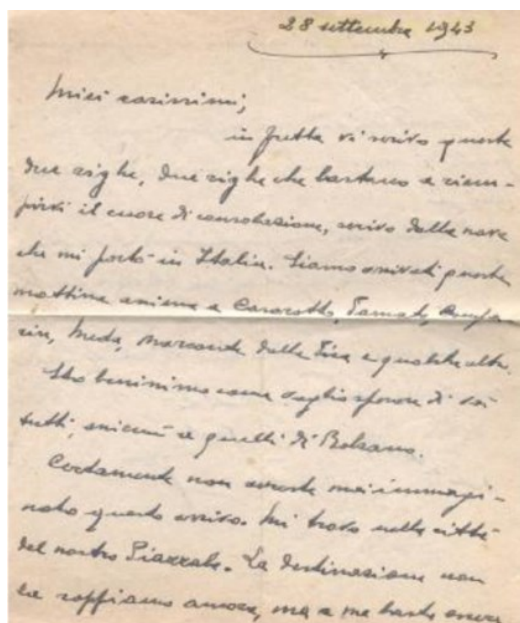 28 settembre 1943
Miei carissimi,
in fretta vi scrivo queste
due righe, due righe che bastano a riem-
pirvi il cuore di consolazione, scrivo dalla nave
che mi portò in Italia. Siamo arrivati questa
mattina assieme a Casarotto,
Meda, dalla e qualche altro.
Sto benissimo come voglio sperare di voi
tutti, assieme a quelli di Bolzano.
Certamente non avreste mai immagi-
nato questo arrivo. Mi trovo nella città
del nostro Piazzale. La destinazione non
la sappiamo ancora, ma a me basta essere